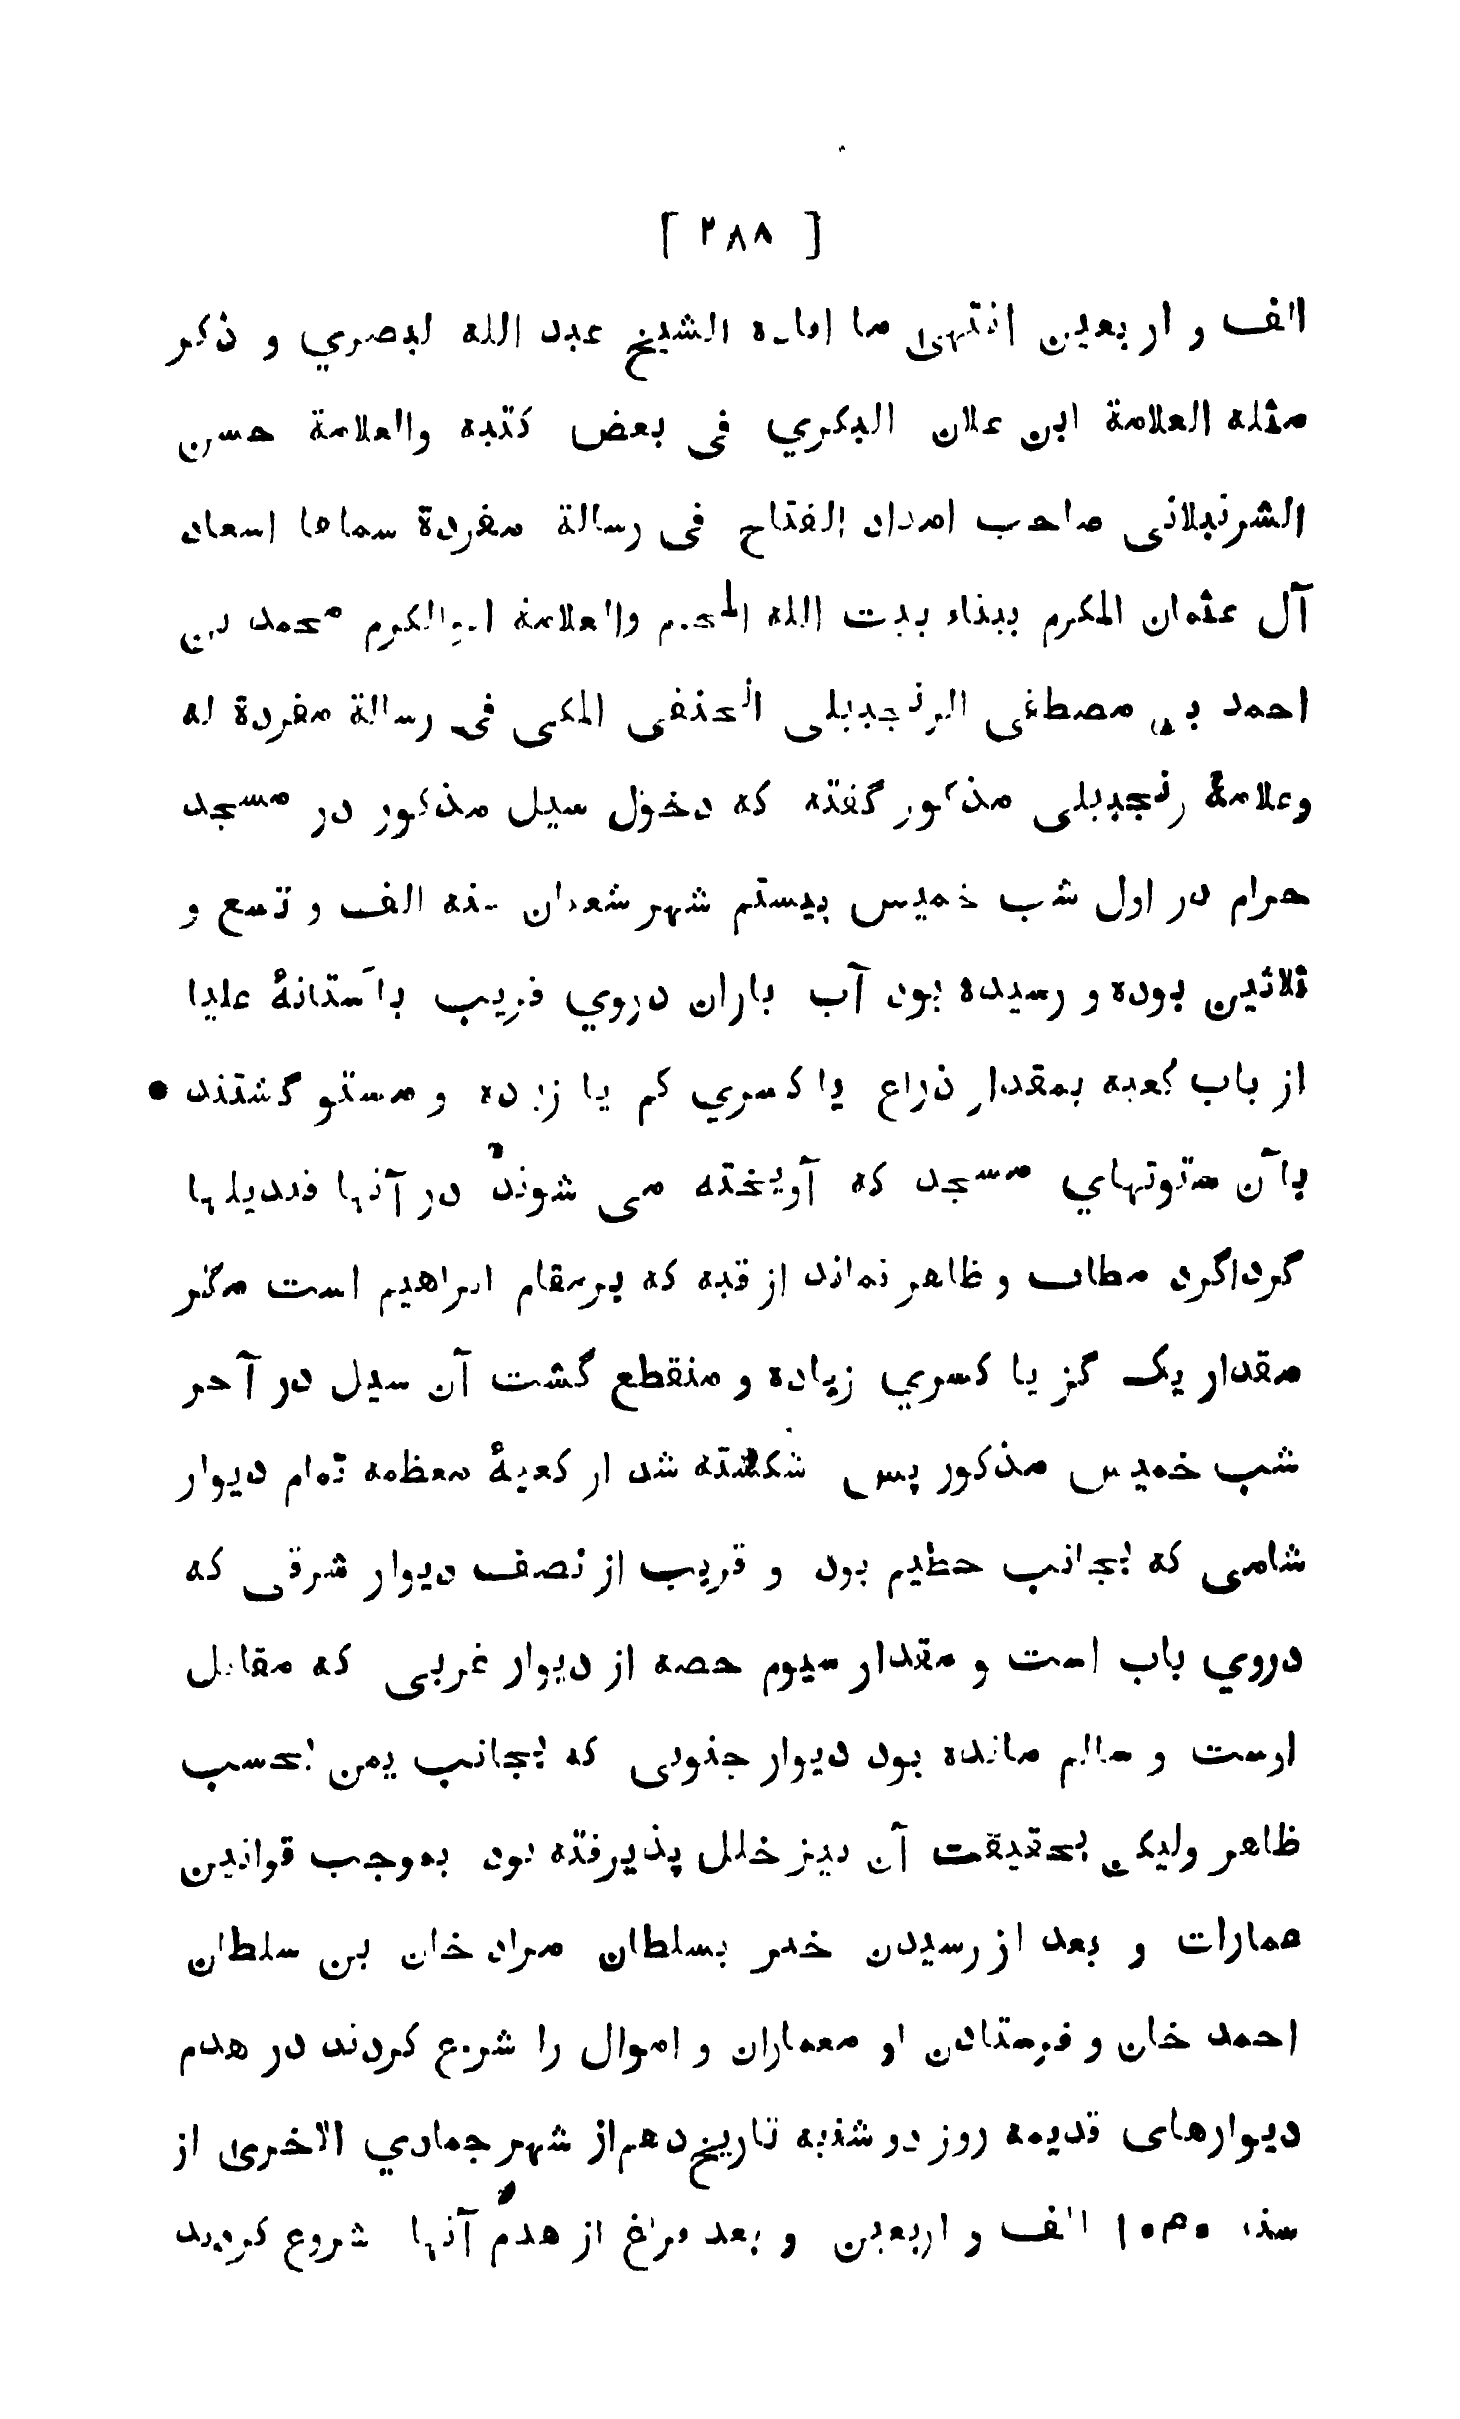 [ ٢٨٨ ]
الف و اربعين انتهى ما افاده الشيخ عبد الله لبصري و ذكر
مثله العلامة ابن علان البكري فى بعض كتبه والعلامة حسن
الشرنبلانى صاحب امداد الفتاح فى رسالة مفردة سماها اسعاد
آل عثمان المكرم ببناء بيت الله المحرم والعلامة ابوالكرم محمد بن
احمد بن مصطفى الزنجبيلى الحنفى المكى فى رسالة مفردة له
وعلامۀ زنجبيلى مذكور گفته كه دخول سيل مذكور در مسجد
حرام در اول شب خميس بيستم شهر شعبان سنه الف و تسع و
ثلاثين بوده و رسيده بود آب باران دروي قريب بآستانۀ عليا
از باب كعبه بمقدار ذراع يا كسري كم يا زياده و مستو گشتند •
بآن ستونهاي مسجد كه آويخته مى شوند در آنها قنديلها
گرداگرد مطاف و ظاهر نماند از قبه كه برمقام ابراهيم است مگر
مقدار يک گز يا كسري زياده و منقطع گشت آن سيل در آخر
شب خميس مذكور پس شكسته شد از كعبۀ معظمه تمام ديوار
شامى كه بجانب حطيم بود و قريب از نصف ديوار شرقى كه
دروي باب است و مقدار سيوم حصه از ديوار غربى كه مقابل
اوست و سالم مانده بود ديوار جنوبى كه بجانب يمن بحسب
ظاهر وليكن بحقيقت آن نيز خلل پذيرفته بود بموجب قوانين
عمارات و بعد از رسيدن خبر بسلطان مراد خان بن سلطان
احمد خان و فرستادن او معماران و اموال را شروع كردند در هدم
ديوارهاى قديمه روز دو شنبه تاريخ دهم از شهر جمادي الاخرى از
سنه ١٠٤٠ الف و اربعين و بعد فراغ از هدم آنها شروع كرديد